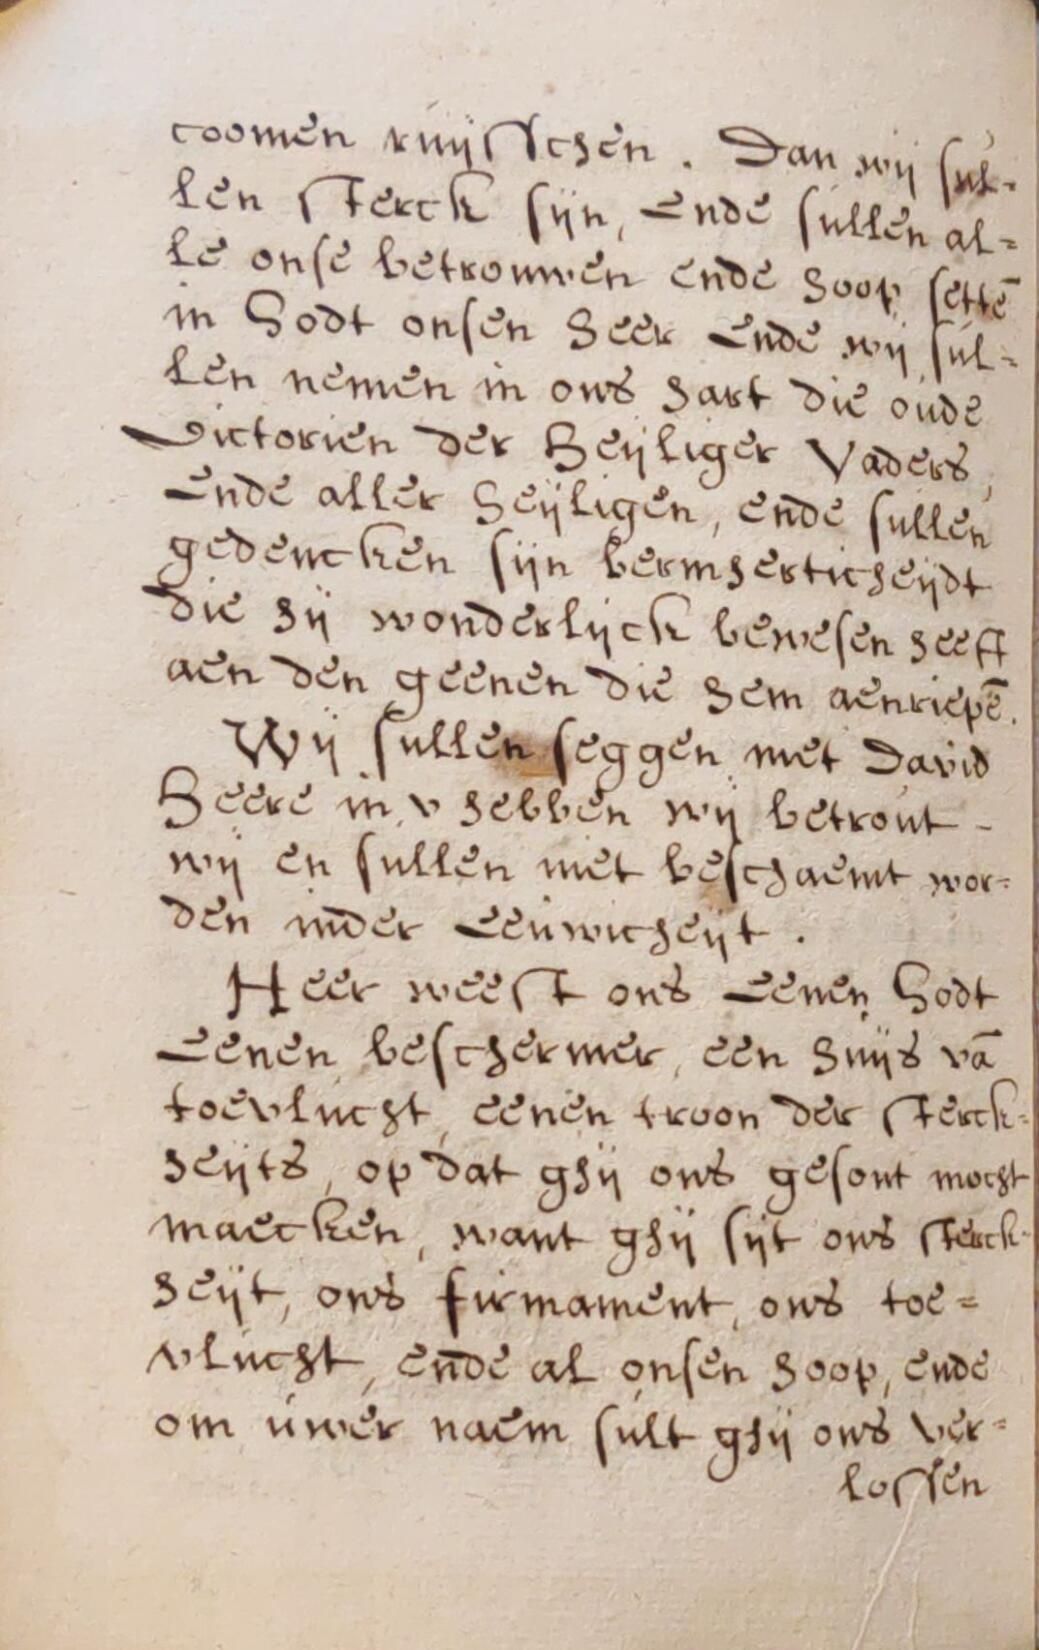 coomen ruijsschen. Dan wij sul-
len sterck sijn, ende sullen al-
le onse betrouwen ende hoop settē
in Godt onsen Heer ende wij sul-
len nemen in ons hart die oude
victorien der Heijliger Vaders,
ende aller Heijligen, ende sullen
gedencken sijn bermherticheijdt
die hij wonderlijck bewesen heeft
aen den geenen die hem aenriepē.
Wij sullen seggen met David
Heere in v hebben wij betrout -
wij en sullen niet beschaemt wor-
den inder eeuwicheijt.
Heer weest ons eenen Godt
eenen beschermer, een huijs vā
toevlucht, eenen troon der sterck-
heijts, op dat ghij ons gesont mocht
maecken, want ghij sijt ons sterck-
heijt, ons firmament, ons toe-
vlucht, ende al onsen hoop, ende
om uwer naem sult ghij ons ver-
lossen